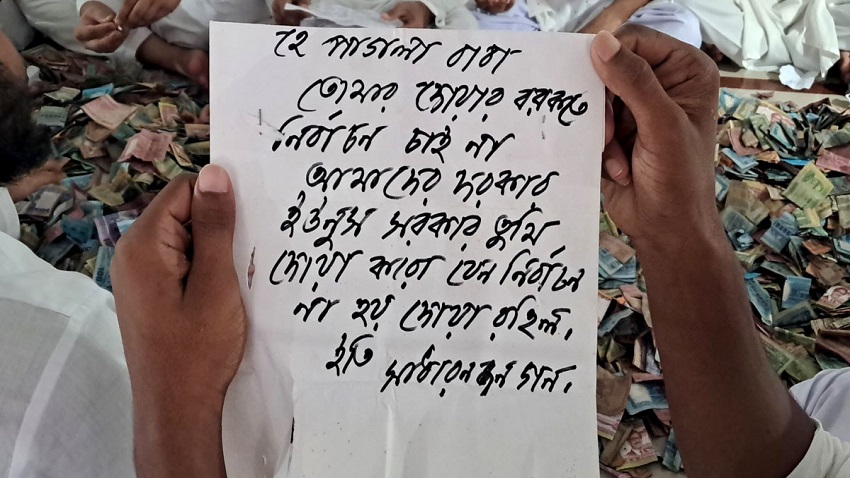 হে পাগলা বাবা
তোমার দোয়ার বরকতে
নির্বাচন চাই না
আমাদের দরকার
ইউনুস সরকার তুমি
দোয়া করো যেন নির্বাচন
না হয় দোয়া রহিল।
ইতি সাধারনজন গন।